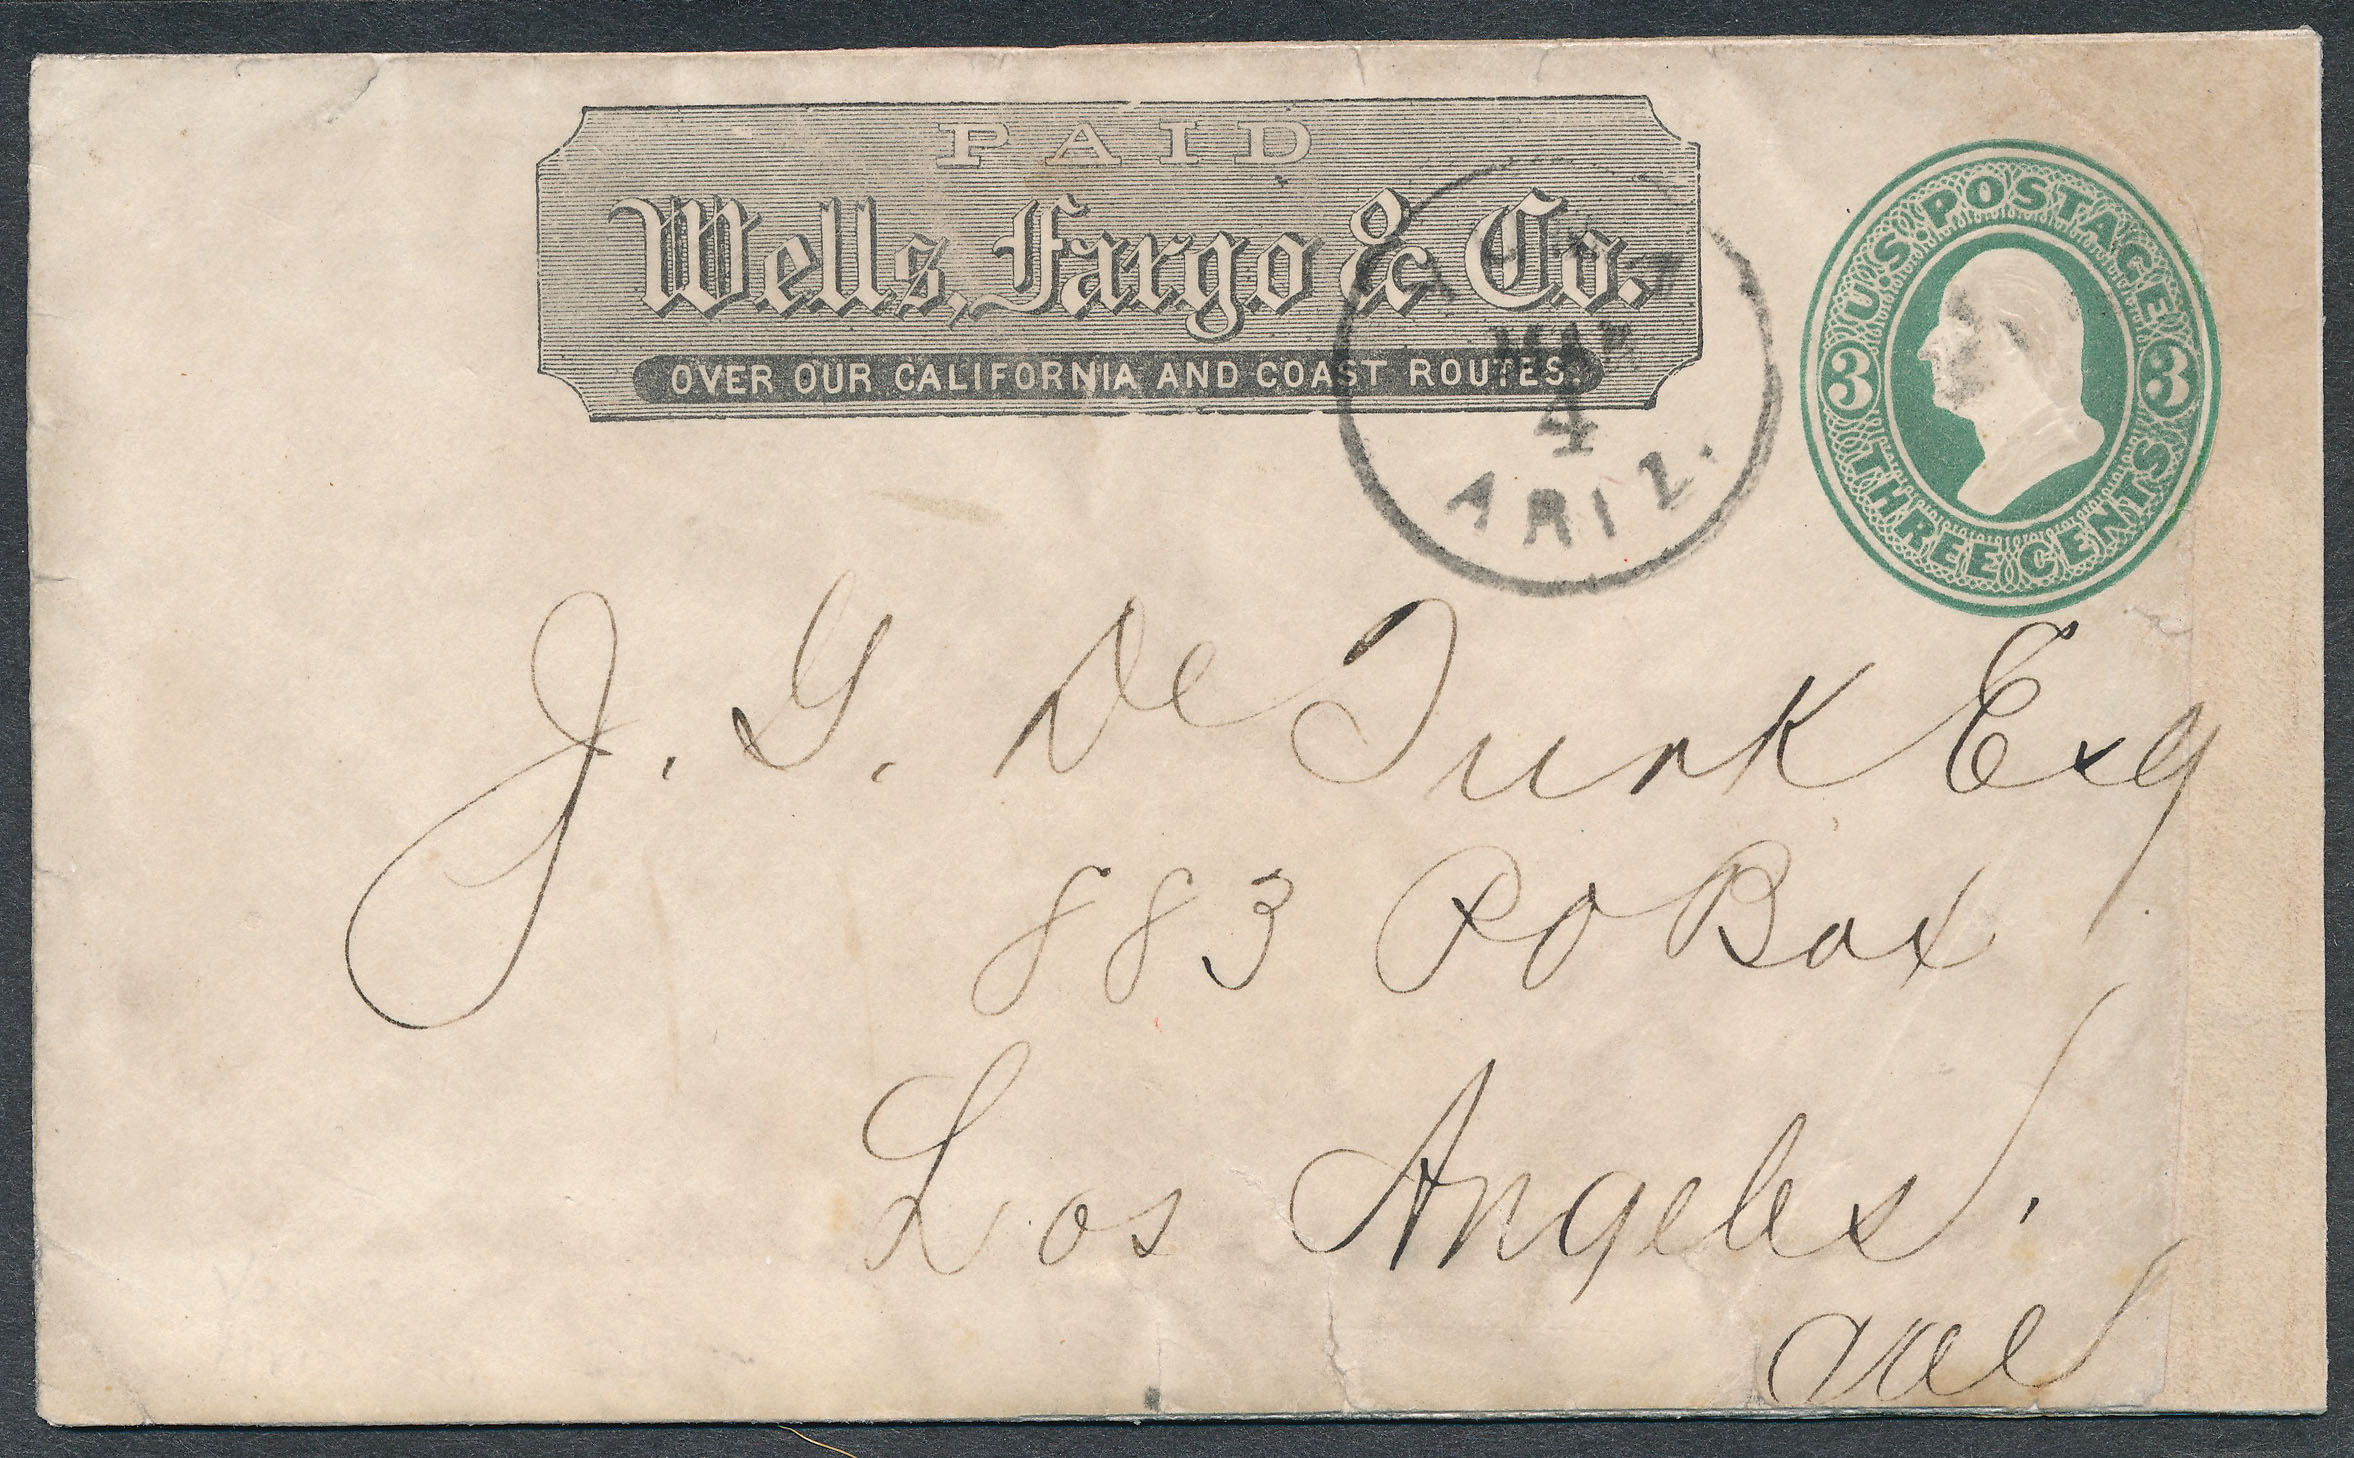 PAID
Wells, Fargo & Co.
OVER OUR CALIFORNIA AND COAST ROUTES.
MAR
4
ARIZ.
U.S. POSTAGE
3 3
THREE CENTS
J. G. De Turk Esq
883 PO Box
Los Angeles,
Cal